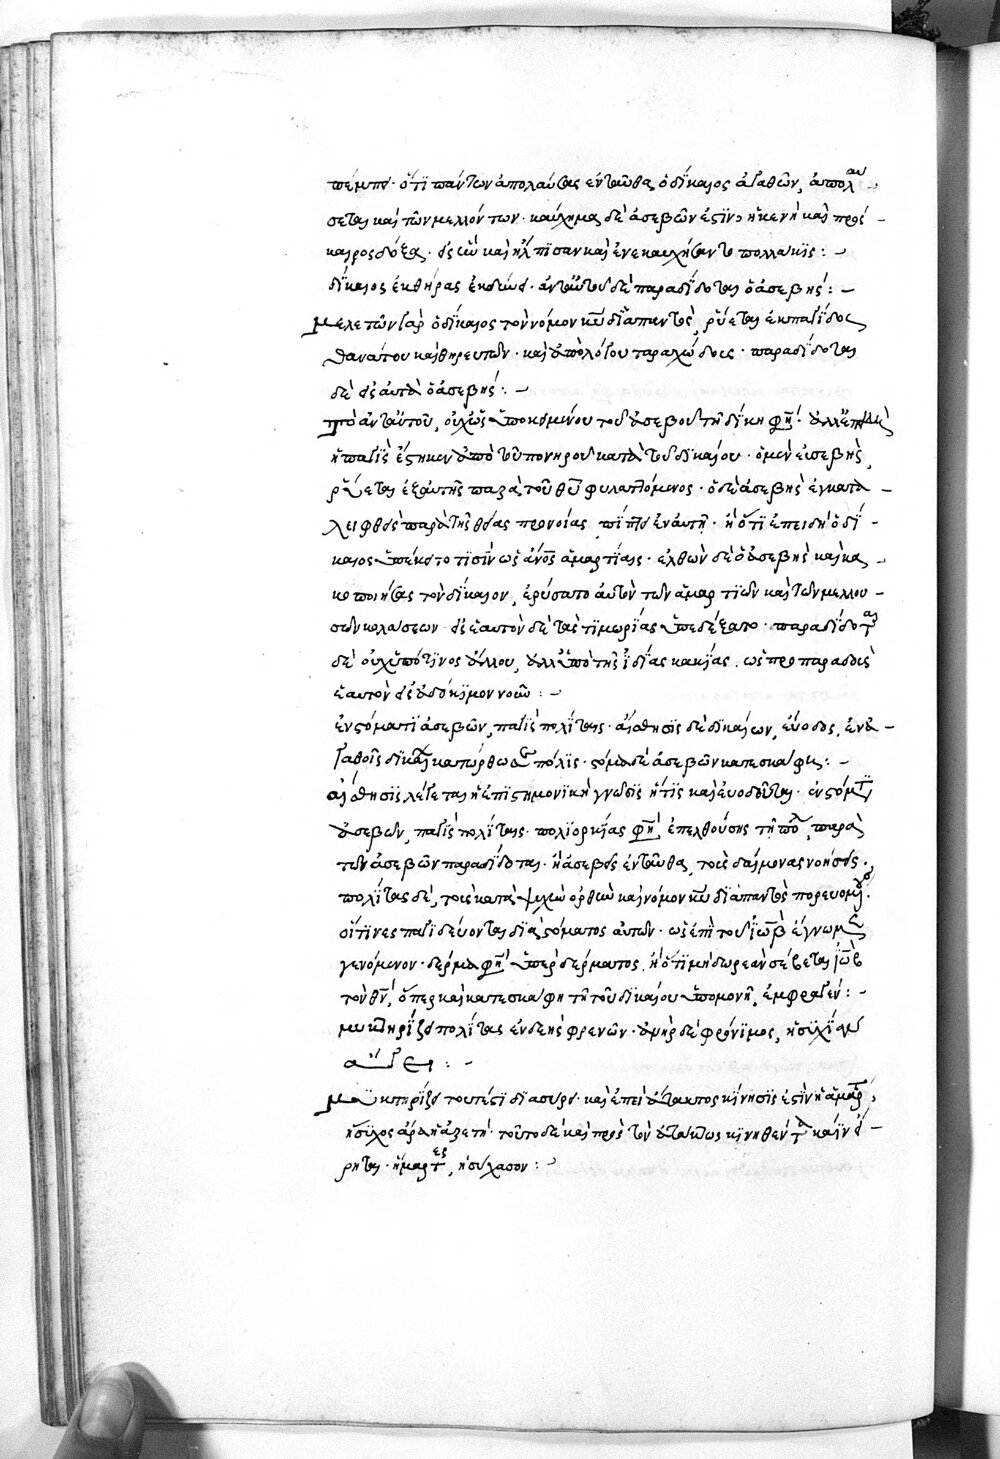 πέμπει· ὅτι πάντων ἀπολαύσας ἐνταῦθα ὁ δίκαιος ἀγαθῶν, ἀπολαύ
σεται καὶ τῶν μελλόντων· καύχημα δὲ ἀσεβῶν ἐστὶν ἡ κενὴ καὶ πρόσ
καιρος δόξα· εἰς ἣν καὶ ἤλπισαν καὶ ἐνεκαυχήσαντο πολλάκις:
δίκαιος ἐκ θήρας ἐκδύνει· ἀντ' αὐτοῦ δὲ παραδίδοται ὁ ἀσεβής:
μελετῶν γὰρ ὁ δίκαιος τὸν νόμον κυ διαπαντὸς, ῥύεται ἐκ παγίδος
θανάτου καὶ θηρευτῶν· καὶ ἀπὸ λόγου ταραχώδους· παραδίδοται
δὲ εἰς αὐτὰ ὁ ἀσεβής:
τὸ ἀντ' αὐτοῦ, οὐχ ὡς ὑποκειμένου τοῦ ἀσεβοῦς τῇ δίκῃ φη·
ἡ παγὶς ἕστηκεν ἀπὸ τοῦ πονηροῦ κατὰ τοῦ δικαίου· ὁ μὲν εὐσεβὴς,
ῥύεται ἐξ αὐτῆς παρὰ τοῦ θυ φυλαττόμενος· ὁ δὲ ἀσεβὴς ἐγκατα
λειφθεὶς παρὰ τῆς θείας προνοίας πίπτει ἐν αὐτῇ· ἢ ὅτι ἐπειδὴ ὁ δί
καιος ὑπέκειτο τισὶν ὡς ανος ἁμαρτίαις· ἐλθὼν δὲ ὁ ἀσεβὴς καὶ κα
κοποιήσας τὸν δίκαιον, ἐρύσατο αὐτὸν τῶν ἁμαρτιῶν καὶ τῶν μελλου
σῶν κολάσεων· εἰς ἑαυτὸν δὲ τὰς τιμωρίας ὑπεδέξατο· παραδίδοται
δὲ οὐχ ὑπό τινος ἄλλου, ἀλλ' ὑπὸ τῆς ἰδίας κακίας. ὡσπερ παραδοὺς
ἑαυτὸν εἰς ἀδόκιμον νοῦν:
ἐν στόματι ἀσεβῶν, παγὶς πολίταις· αἴσθησις δὲ δικαίων, εὔοδος, ἐν ἀ
γαθοῖς δικαίων κατώρθωσε πόλις· στόμα δὲ ἀσεβῶν κατεσκάφη:
αἴσθησις λέγεται ἡ ἐπιστημονικὴ γνῶσις ἥτις καὶ εὐοδοῦται· ἐν στόματι
ἀσεβῶν, παγὶς πολίταις· πολιορκίας φη, ἐπελθούσης τῇ πόλει, παρὰ
τῶν ἀσεβῶν παραδίδοται· ἢ ἀσεβεῖς ἐνταῦθα, τοὺς δαίμονας νοήσεις·
πολίτας δὲ, τοὺς κατὰ ψυχὴν ὀρθῶς καὶ νόμον κυ διαπαντὸς πορευομένους·
οἵτινες παγιδεύονται διὰ στόματος αὐτῶν· ὡς ἐπὶ τοῦ ἰὼβ ἔγνωμεν
γενόμενον· δέρμα φη ὑπὲρ δέρματος. ἢ ὅτι μὴ δωρεὰν σέβεται ἰὼβ
τὸν θν, ὅπερ καὶ κατεσκάφη τῇ τοῦ δικαίου ὑπομονῇ, ἐμφραγέν:
μυκτηρίζει πολίτας ἐνδεὴς φρενῶν· ἀνὴρ δὲ φρόνιμος, ἡσυχίαν
ἄγει:
μυκτηρίζει τουτέστι διασύρει· καὶ ἐπεὶ ἄτακτος κίνησις ἐστὶν ἡ ἁμαρτία,
ἥσυχος ἄρα ἡ ἀρετή· τοῦτο δὲ καὶ πρὸς τὸν ἀτάκτως κινηθέντα κάϊν εἴ
ρηται· ἥμαρτες, ἡσύχασον: